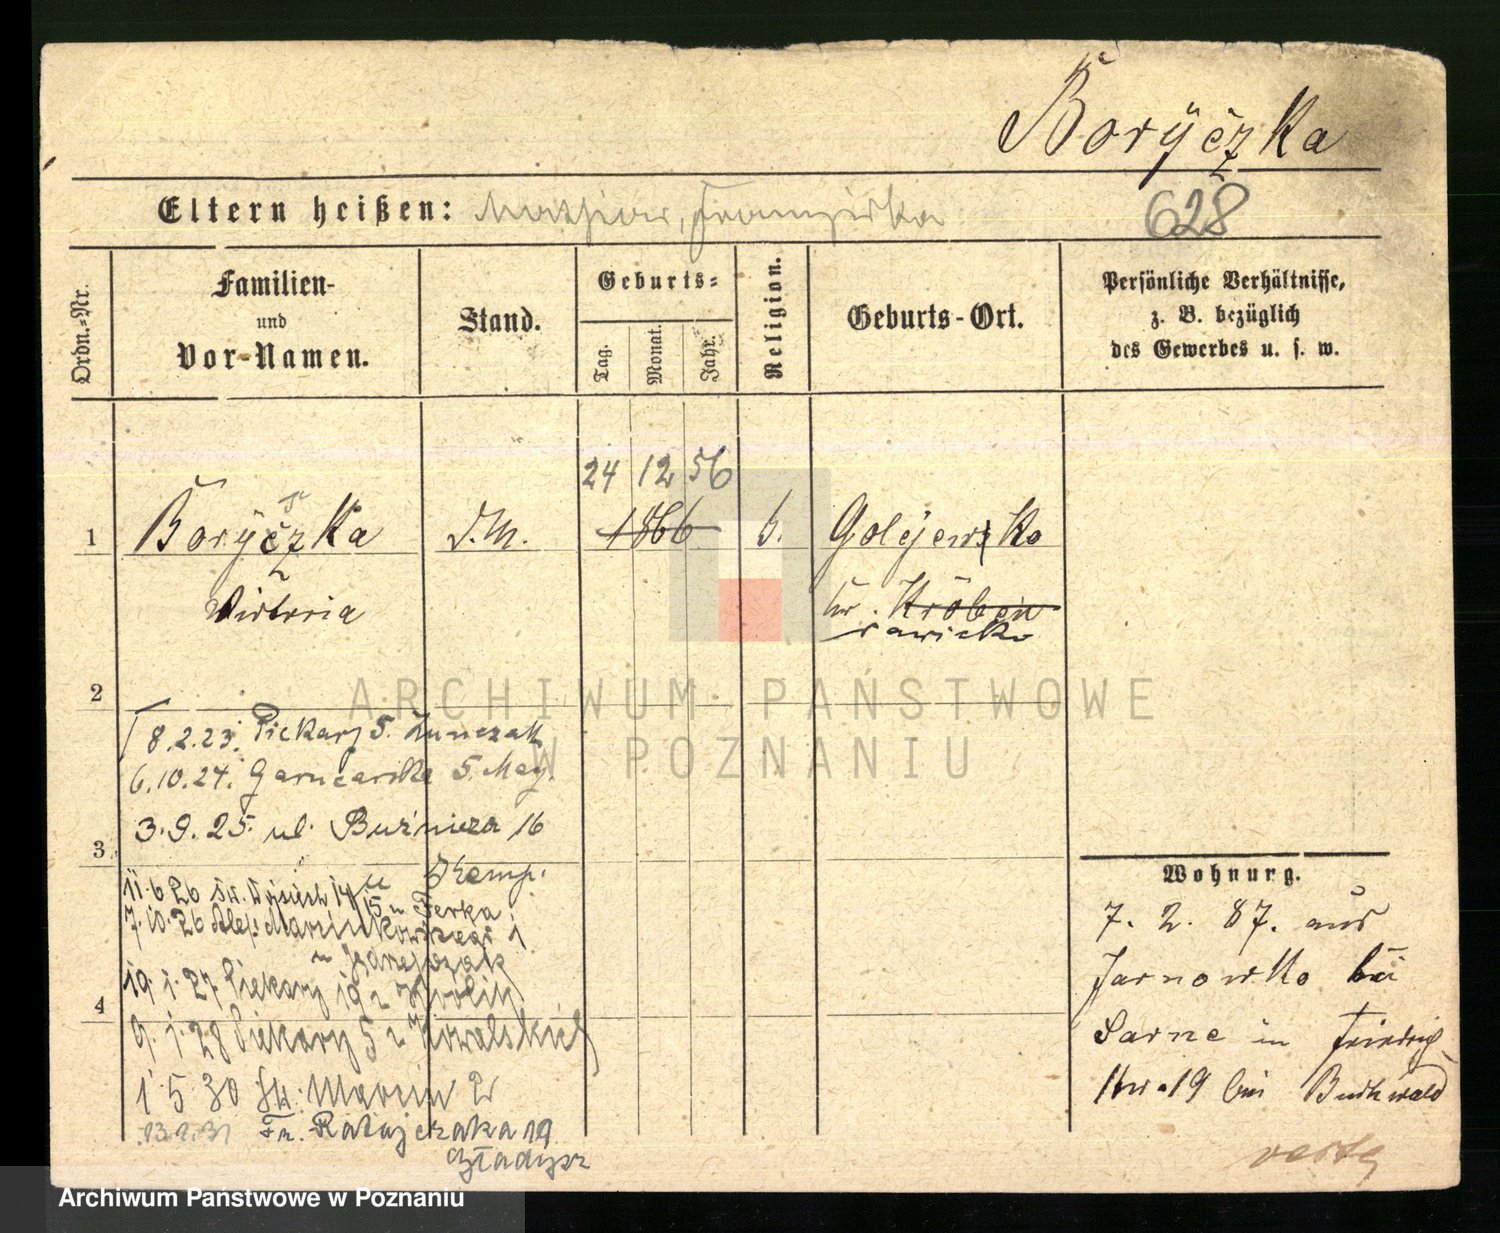 Boryczka
Eltern heißen: Mathias, Franziska
628
Ordn.-Nr.
Familien-
und
Vor-Namen.
Stand.
Geburts-
Tag.
Monat.
Jahr.
Religion.
Geburts-Ort.
Persönliche Verhältnisse,
z. B. bezüglich
des Gewerbes u. s. w.
24 12 56
1 Boryczka D.M. 1866 k. Golejewko
Victoria Kr. Kröben
rawicko
2
8.2.23. Piekary 5.
6.10.24. Garncarska 5. May.
3.9.25. ul. Buźnicza 16
3
Kemp.
11.6.26 Św. Wojciech 14 u Ferka
7.10.26 Alej. Marcinkowskiego 1
u
19.1.27 Piekary 19 u
4
9.1.28 Piekary 5 u Kowalskich
1.5.30 Św. Marcin 2
13.1.31 Fr. Ratajczaka 19
Wohnung.
7. 2. 87. aus
Sarnowko bei
Sarne in Friedrich
str. 19 bei Buchwald
verte
ARCHIWUM PAŃSTWOWE
W POZNANIU
Archiwum Państwowe w Poznaniu